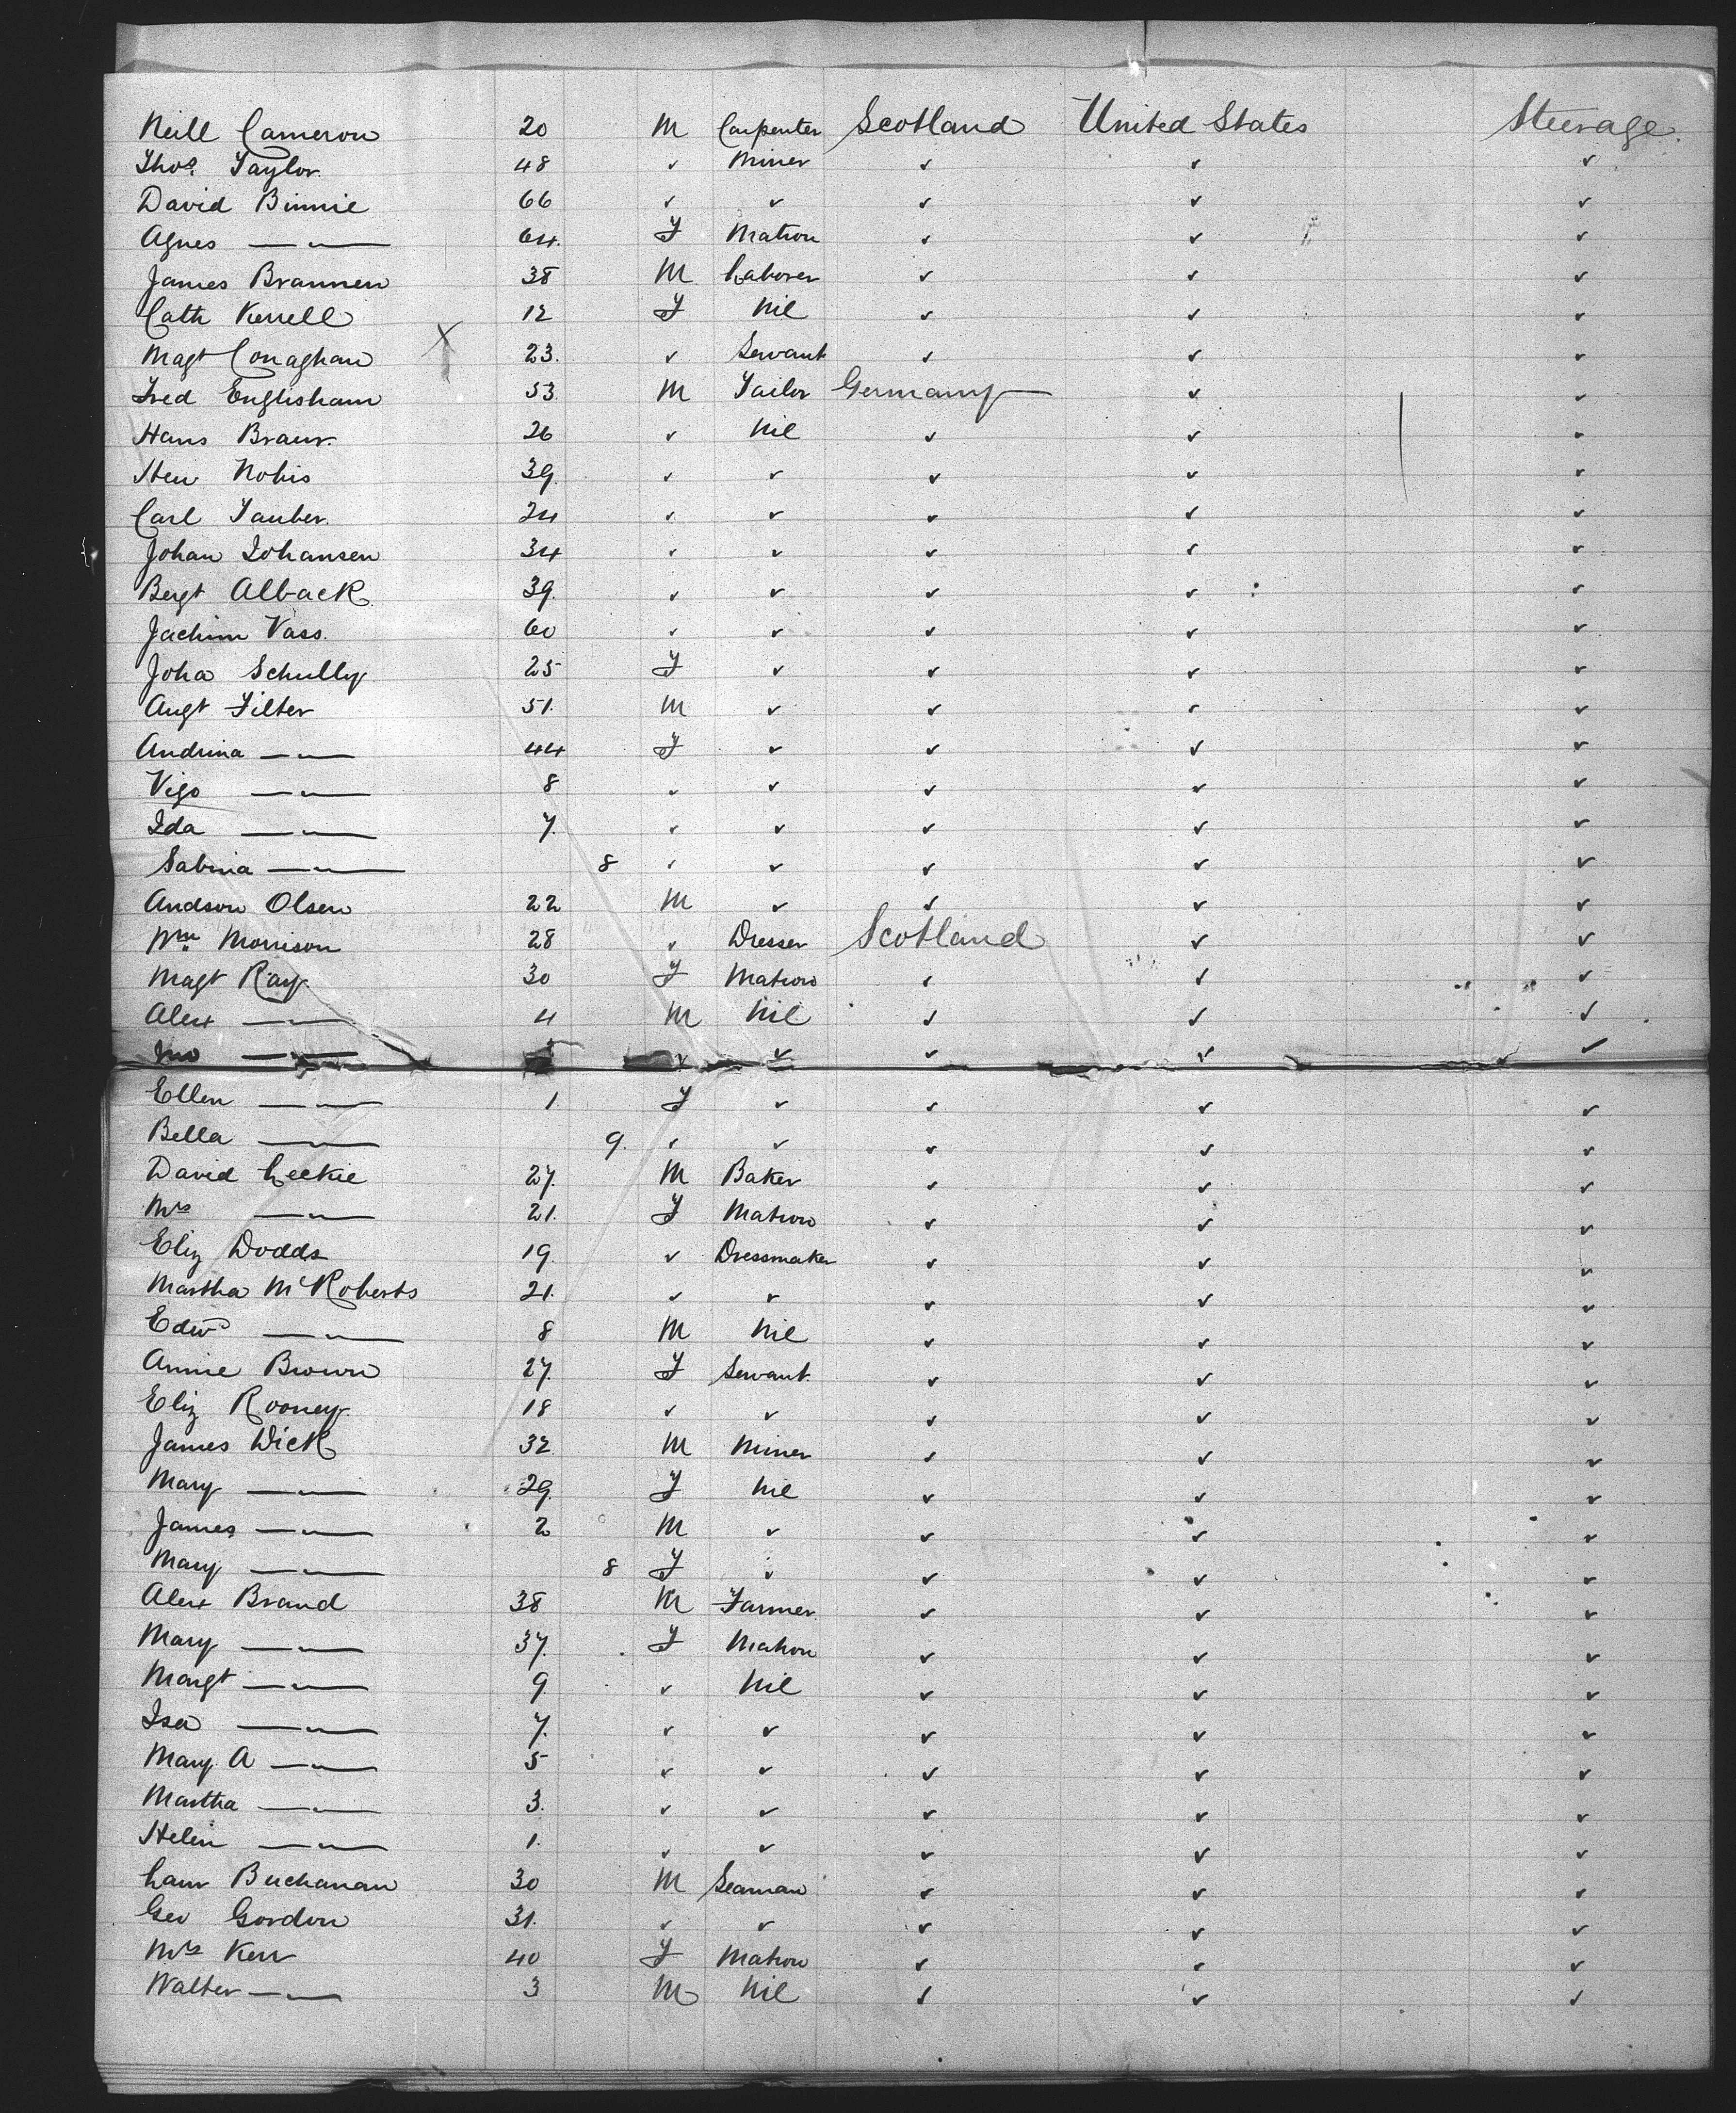 Neill Cameron 20 M Carpenter Scotland United States Steerage
Thos. Taylor 48 ✓ Miner ✓ ✓ ✓
David Binnie 66 ✓ ✓ ✓ ✓ ✓
Agnes —"— 64 F Matron ✓ ✓ ✓
James Brannen 38 M Laborer ✓ ✓ ✓
Cath Kerrell 12 F Nil ✓ ✓ ✓
Magt Conaghan X 23 ✓ Servant ✓ ✓ ✓
Fred Englisham 53 M Tailor Germany ✓ ✓
Hans Braur 26 ✓ Nil ✓ ✓ ✓
Hew Nohis 39 ✓ ✓ ✓ ✓ ✓
Carl Tauber 24 ✓ ✓ ✓ ✓ ✓
Johan Johansen 34 ✓ ✓ ✓ ✓ ✓
Bergt Alback 39 ✓ ✓ ✓ ✓ ✓
Jachim Vass 60 ✓ ✓ ✓ ✓ ✓
Joha Schully 25 F ✓ ✓ ✓ ✓
Augt Filter 51 M ✓ ✓ ✓ ✓
Andrina —"— 44 F ✓ ✓ ✓ ✓
Vigo —"— 8 ✓ ✓ ✓ ✓ ✓
Ida —"— 7 ✓ ✓ ✓ ✓ ✓
Sabina —"— 8 ✓ ✓ ✓ ✓ ✓
Andson Olsen 22 M ✓ ✓ ✓ ✓
Wm Morrison 28 ✓ Dresser Scotland ✓ ✓
Magt Ray 30 F Matron ✓ ✓ ✓
Alex —"— 4 M Nil ✓ ✓ ✓
Jno —"— ✓ ✓ ✓ ✓ ✓
Ellen —"— 1 F ✓ ✓ ✓ ✓
Bella —"— 9 ✓ ✓ ✓ ✓ ✓
David Leckie 27 M Baker ✓ ✓ ✓
Mrs —"— 21 F Matron ✓ ✓ ✓
Eliz Dodds 19 ✓ Dressmaker ✓ ✓ ✓
Martha McRoberts 21 ✓ ✓ ✓ ✓ ✓
Edwd —"— 8 M Nil ✓ ✓ ✓
Annie Brown 27 F Servant ✓ ✓ ✓
Eliz Rooney 18 ✓ ✓ ✓ ✓ ✓
James Dick 32 M Miner ✓ ✓ ✓
Mary —"— 29 F Nil ✓ ✓ ✓
James —"— 2 M ✓ ✓ ✓ ✓
Mary —"— 8 F ✓ ✓ ✓ ✓
Alex Brand 38 M Farmer ✓ ✓ ✓
Mary —"— 37 F Matron ✓ ✓ ✓
Margt —"— 9 ✓ Nil ✓ ✓ ✓
Isa —"— 7 ✓ ✓ ✓ ✓ ✓
Mary A —"— 5 ✓ ✓ ✓ ✓ ✓
Martha —"— 3 ✓ ✓ ✓ ✓ ✓
Helen —"— 1 ✓ ✓ ✓ ✓ ✓
Laur Buchanan 30 M Seaman ✓ ✓ ✓
Geo Gordon 31 ✓ ✓ ✓ ✓ ✓
Mrs Kerr 40 F Matron ✓ ✓ ✓
Walter —"— 3 M Nil ✓ ✓ ✓